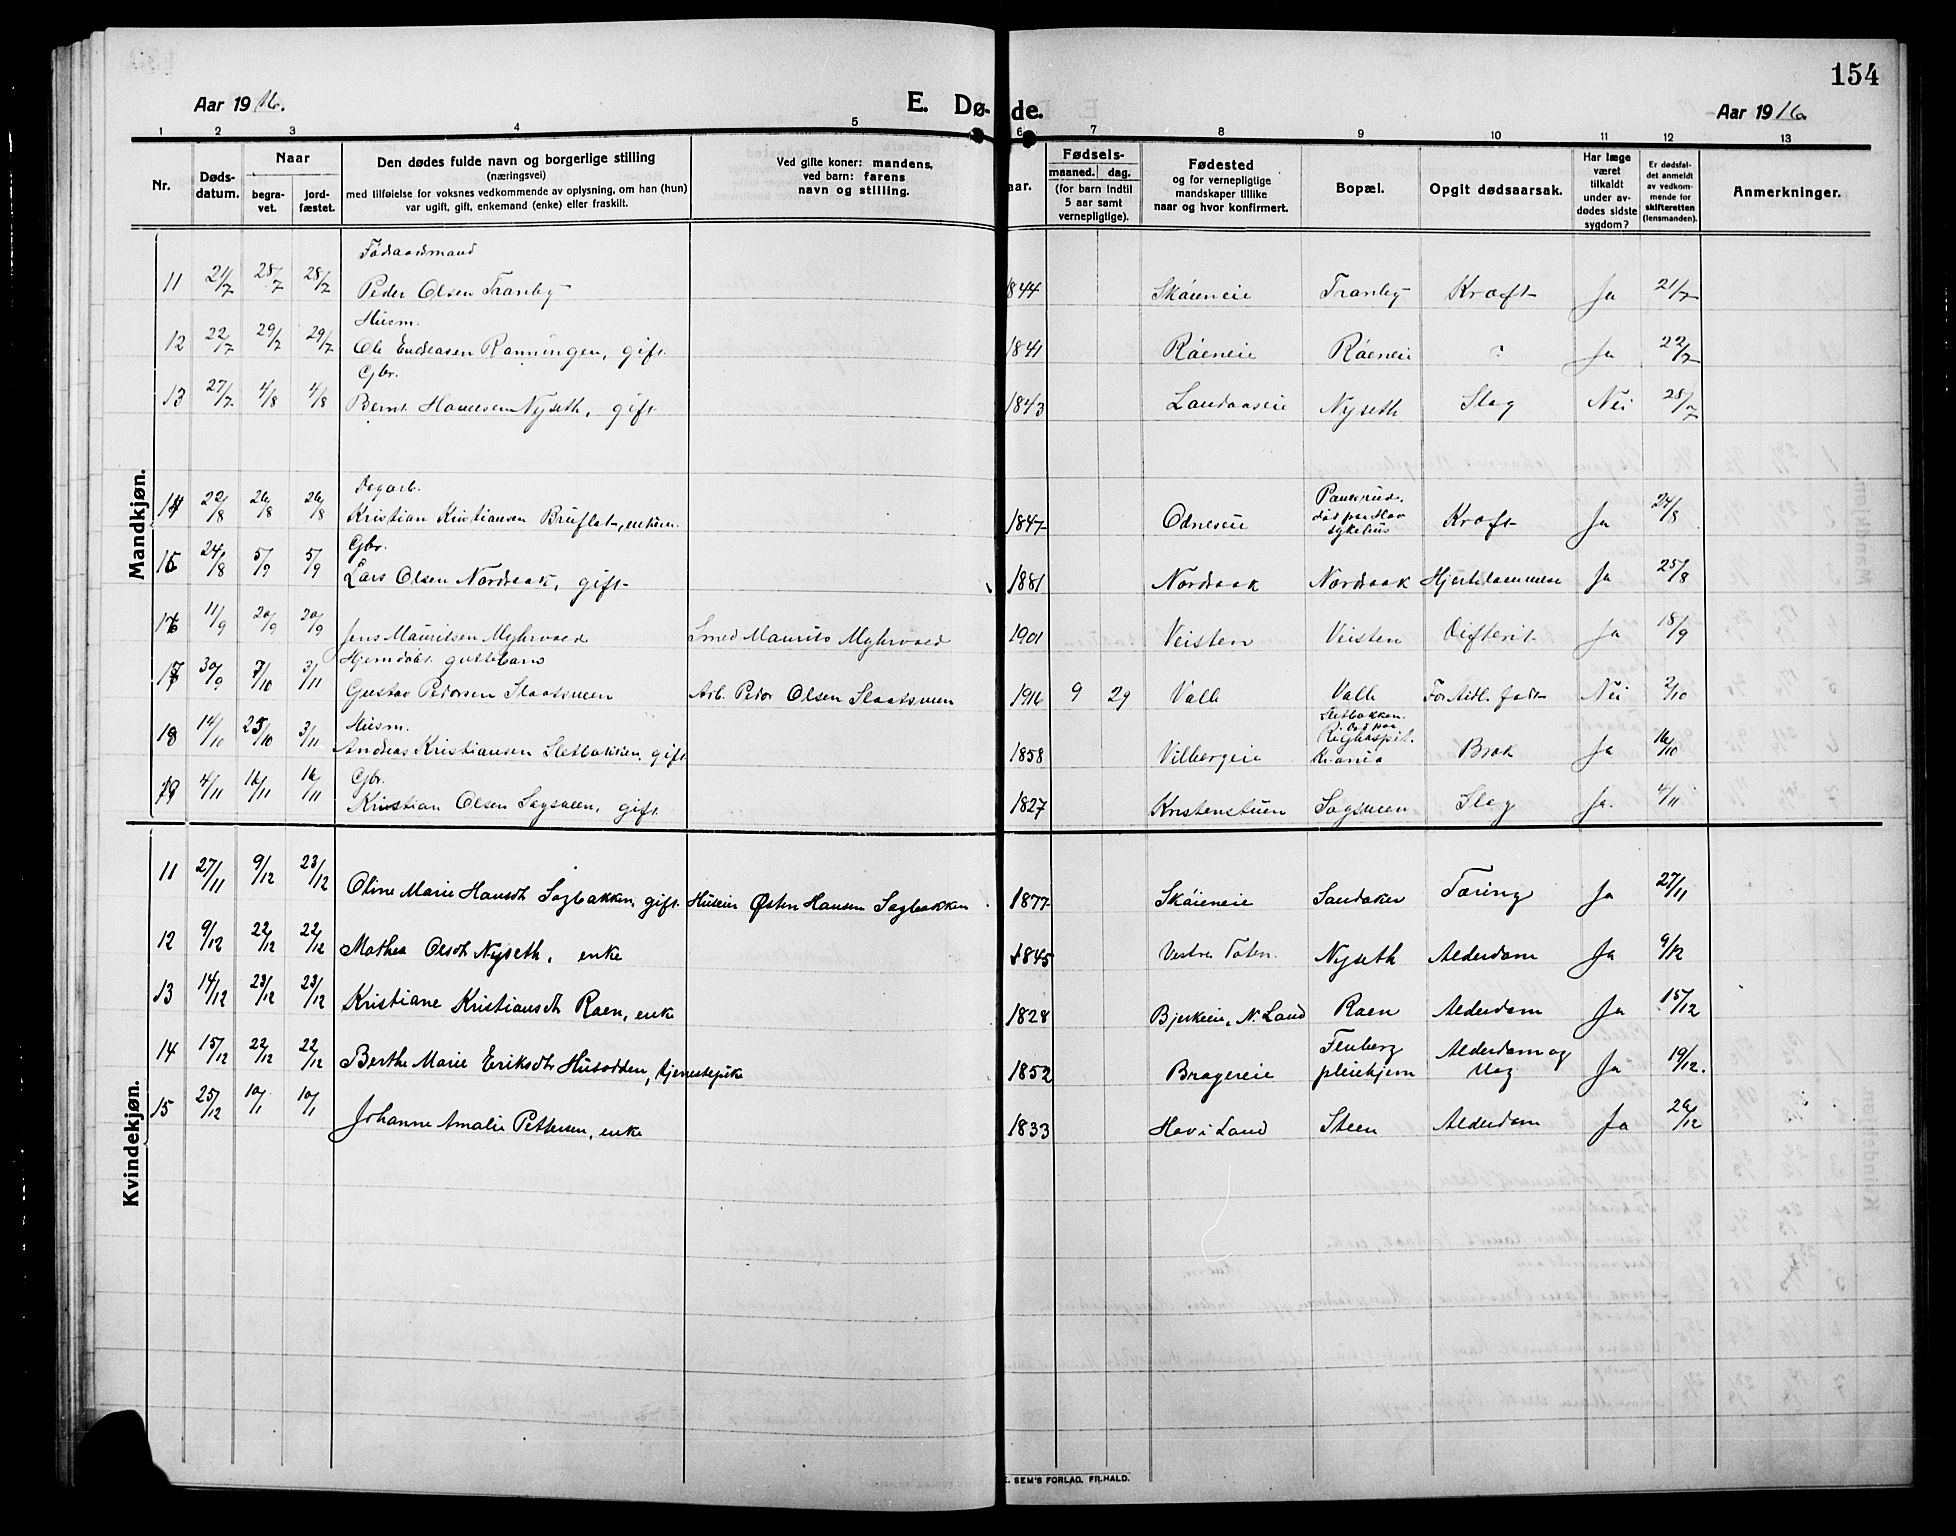 154
Aar 1916.
E. Dø-
de.
Aar 1916.
1 2 3 4 5 6 7 8 9 10 11 12 13
Nr.
Døds-
datum.
Naar
begra-
vet.
jord-
fæstet.
Den dødes fulde navn og borgerlige stilling
(næringsvei)
med tilføielse for voksnes vedkommende av oplysning, om han (hun)
var ugift, gift, enkemand (enke) eller fraskilt.
Ved gifte koner: mandens,
ved barn: farens
navn og stilling.
aar.
Fødsels-
maaned. dag.
(for barn indtil
5 aar samt
vernepligtige).
Fødested
og for vernepligtige
mandskaper tillike
naar og hvor konfirmert.
Bopæl.
Opgit dødsaarsak.
Har læge
været
tilkaldt
under av-
dødes sidste
sygdom?
Er dødsfal-
det anmeldt
av vedkom-
mende for
skifteretten
(lensmanden).
Anmerkninger.
Mandkjøn.
Føderaadsmand
11 21/7 28/7 28/7 Peder Olsen Tranby 1844 Skøieneie Tranby Kræft Ja 21/7
Husm.
12 22/7 29/7 29/7 Ole Endreasen Rønningen, gift. 1841 Røeneie Røeneie ? Ja 22/7
Gbr.
13 27/7 4/8 4/8 Bernt Hansen Nyseth, gift 1843 Landaaseie Nyseth Slag Nei 28/7
Dagarb.
14 22/8 26/8 26/8 Kristian Kristiansen Bruflat, enkem. 1847 Odneseie
død paa Hov
sykehus
Kræft Ja 24/8
Gbr.
15 24/8 5/9 5/9 Lars Olsen Nordraak, gift 1881 Nordraak Nordraak Hjertelammelse Ja 25/8
16 11/9 20/9 20/9 Jens Mauritsen Myhrvold Smed Maurits Myhrvold 1901 Veisten Veisten Difterit Ja 18/9
Hjemdøbt guttebarn
17 30/9 7/10 3/11 Gustav Pedersen Slaatsveen Arb. Peder Olsen Slaatsveen 1916 9 29 Valle Valle For tidl. født Nei 2/10
Husm.
18 14/10 25/10 3/11 Andreas Kristiansen Sletbakken, gift 1858 Vilbergeie
Sletbakken.
Død paa
Righospit.
Kr.ania
Brok Ja 16/10
Gbr.
19 4/11 16/11 16/11 Kristian Olsen Sagsveen, gift. 1827 Kristenstuen Sagsveen Slag Ja. 4/11
Kvindekjøn.
11 27/11 9/12 23/12 Oline Marie Hansdt. Sagbakken, gift. Huseier Østen Hansen Sagbakken 1877 Skøieneie Sandaker Tæring Ja 27/11
12 9/12 22/12 22/12 Mathea Olsdt. Nyseth, enke 1845 Vestre Toten. Nyseth Alderdom Ja 9/12
13 14/12 23/12 23/12 Kristiane Kristiansdt. Roen, enke 1828 Bjerkeie, N. Land Roen Alderdom Ja 15/12
14 15/12 22/12 22/12 Berthe Marie Eriksdt. Husodden, tjenestepike 1852 Bragereie
Fluberg
pleiehjem
Alderdom og
Slag
Ja 19/12.
15 25/12 10/1 10/1 Johanne Amalie Pettersen, enke 1833 Hov i Land Steen Alderdom Ja 26/12
SEM'S FORLAG, FR.HALD.